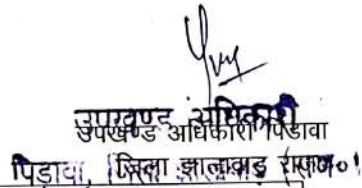 उपखण्ड अधिकारी
उपखण्ड अधिकारी पिडावा
पिडावा, जिला झालावाड़ राज०